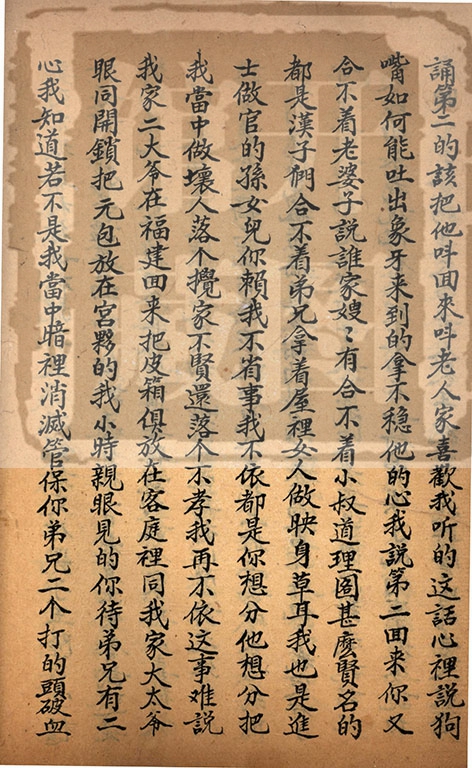 誦第二的該把他呌囬來呌老人家喜歡我听的这話心裡説狗
嘴如何能吐出象牙来到的拿不穩他的心我説第二囬来你又
合不着老婆子説誰家嫂〻有合不着小叔道理图甚麼賢名的
都是漢子們合不着弟兄拿着屋裡女人做映身草耳我也是進
士做官的孫女兒你賴我不省事我不依都是你想分他想分把
我當中做壞人落个攪家不賢還落个不孝我再不依这事难説
我家二大爷在福建囬来把皮箱俱放在客庭裡同我家大太爷
眼同開鎖把元包放在官夥的我小時親眼見的你待弟兄有二
心我知道若不是我當中暗裡消滅管保你弟兄二个打的頭破血